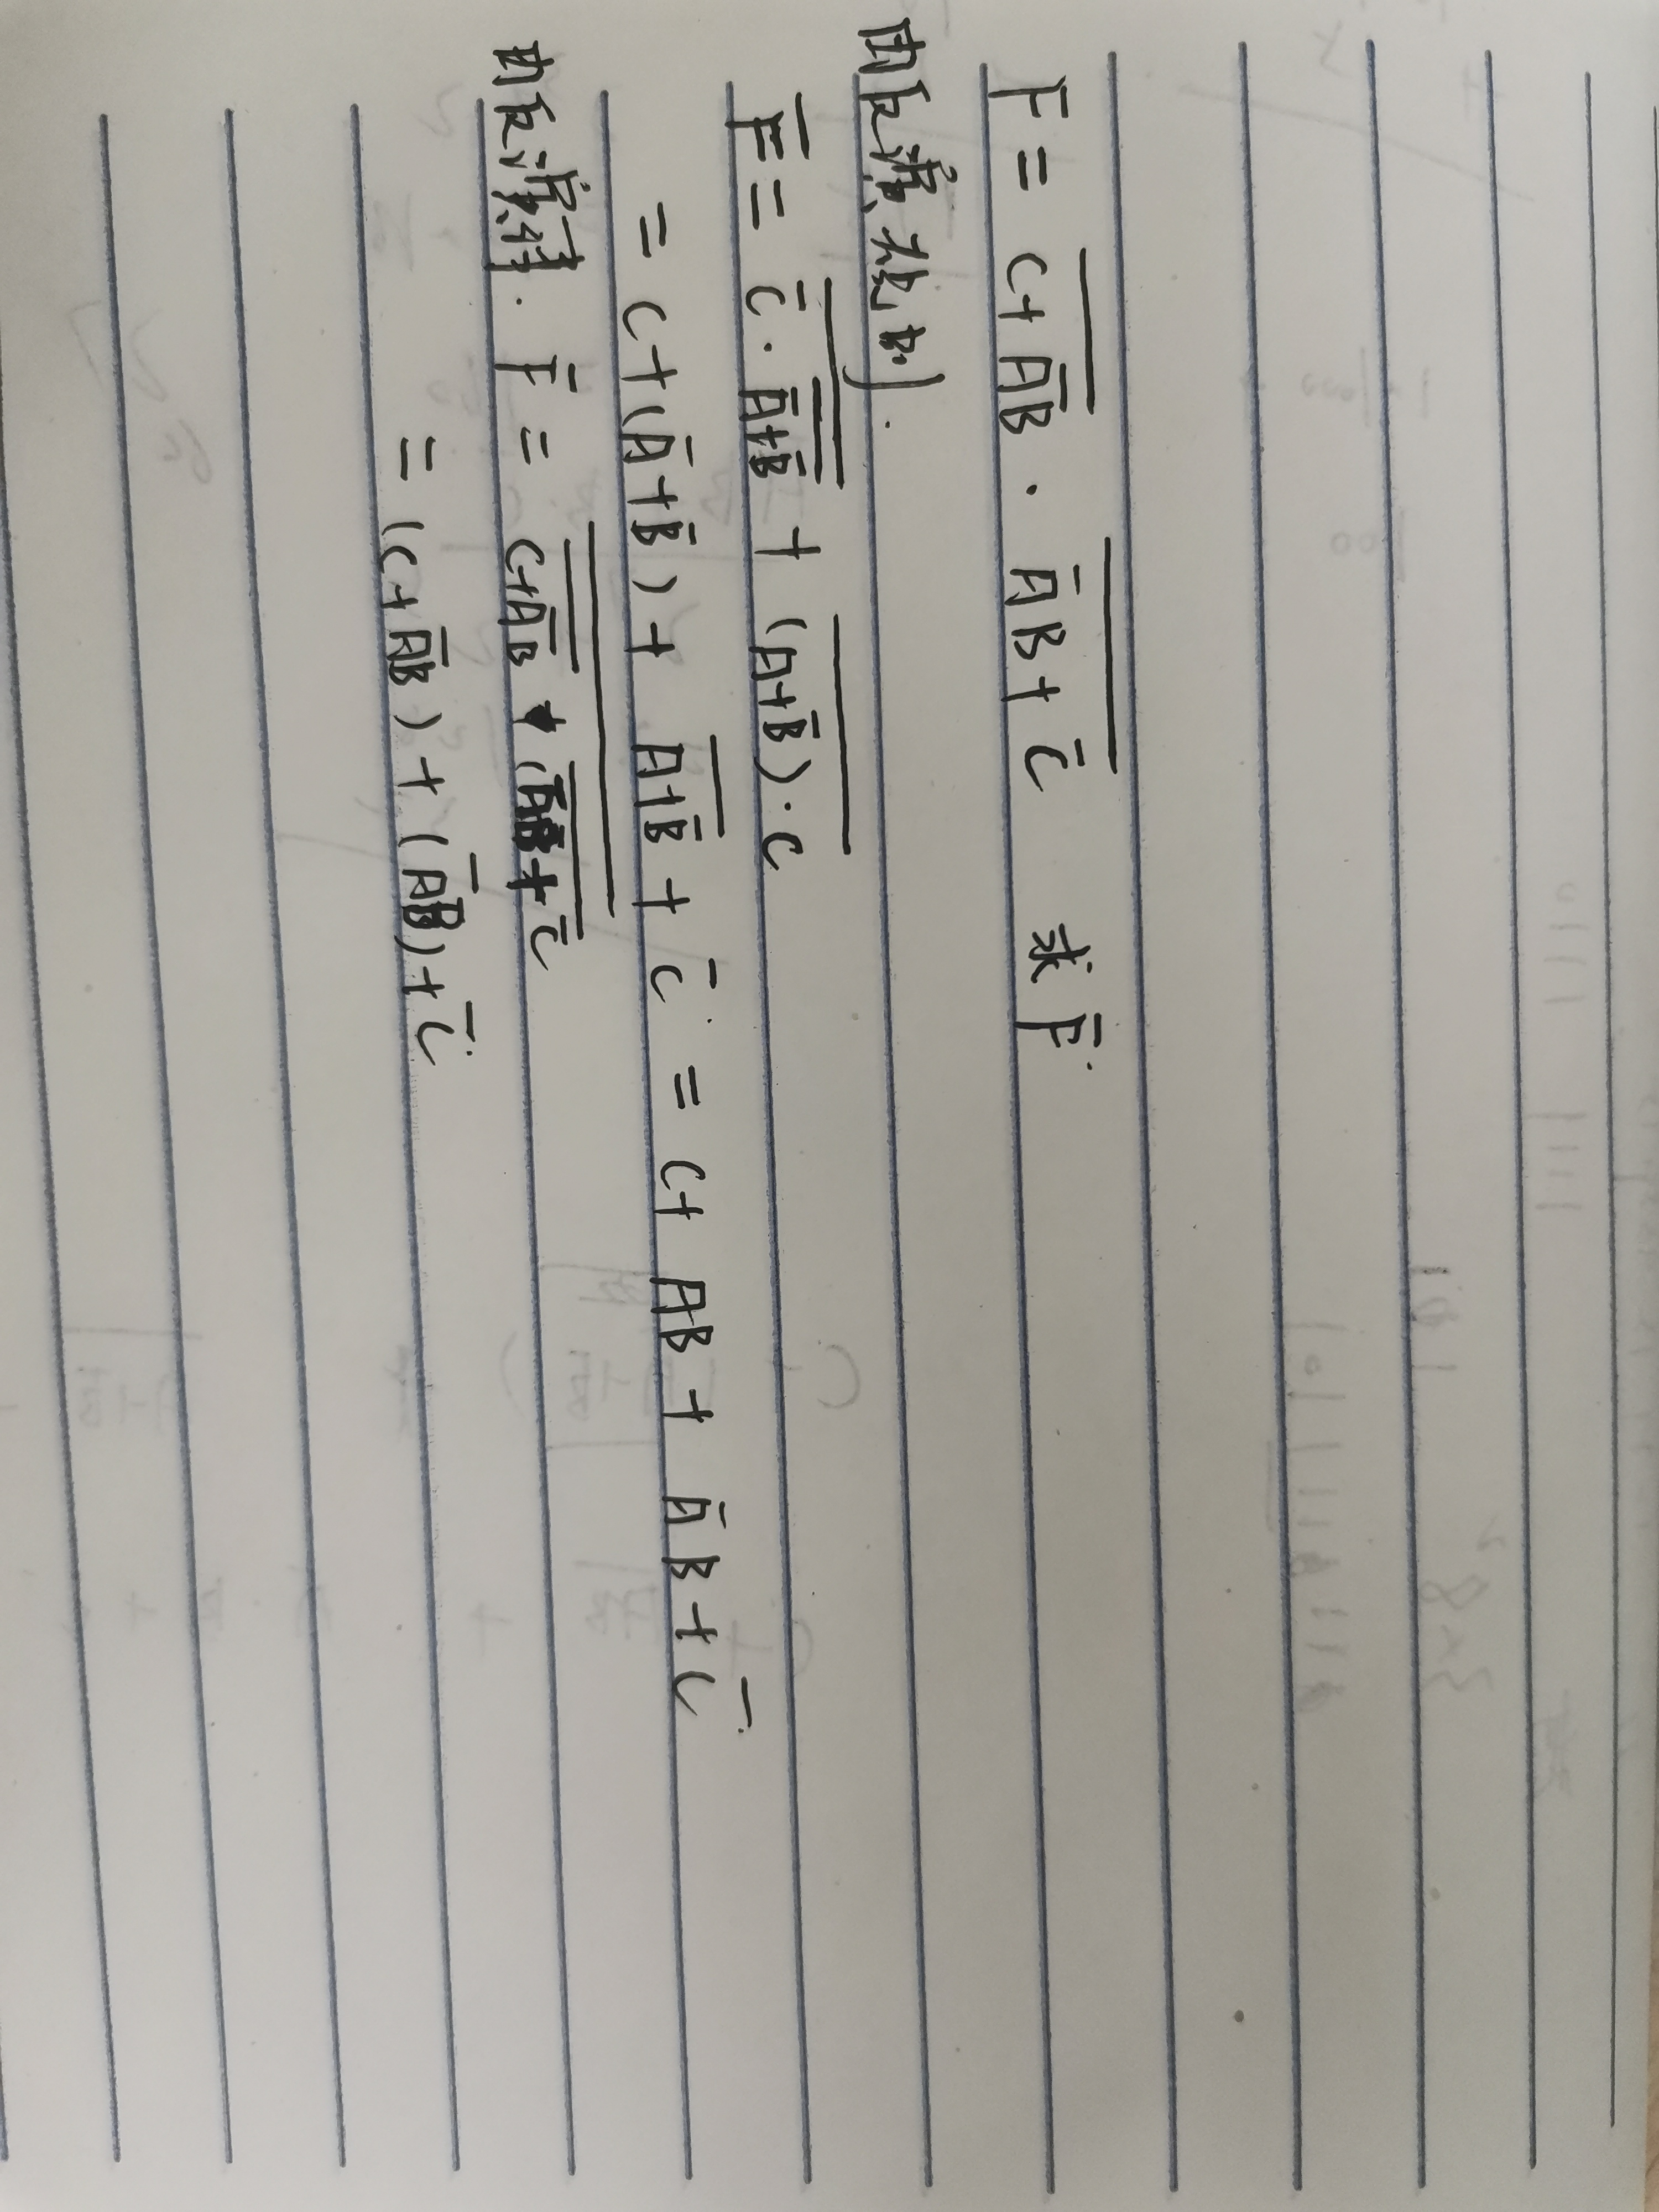 F = \overline{C+\overline{AB}} · \overline{\overline{A}B+\overline{C}} 求 \overline{F}
由反演规则.
\overline{F} = \overline{\overline{C}·\overline{\overline{\overline{A}+\overline{B}}}} + \overline{(A+\overline{B})·C}
= C+(\overline{A}+\overline{B})+ \overline{A+\overline{B}} + \overline{C} = C+ AB + \overline{A}B+\overline{C}
由反演律. \overline{F} = \overline{\overline{C+\overline{AB}} · \overline{\overline{A}B+\overline{C}}}
= (C+\overline{AB})+(\overline{A}B)+\overline{C}